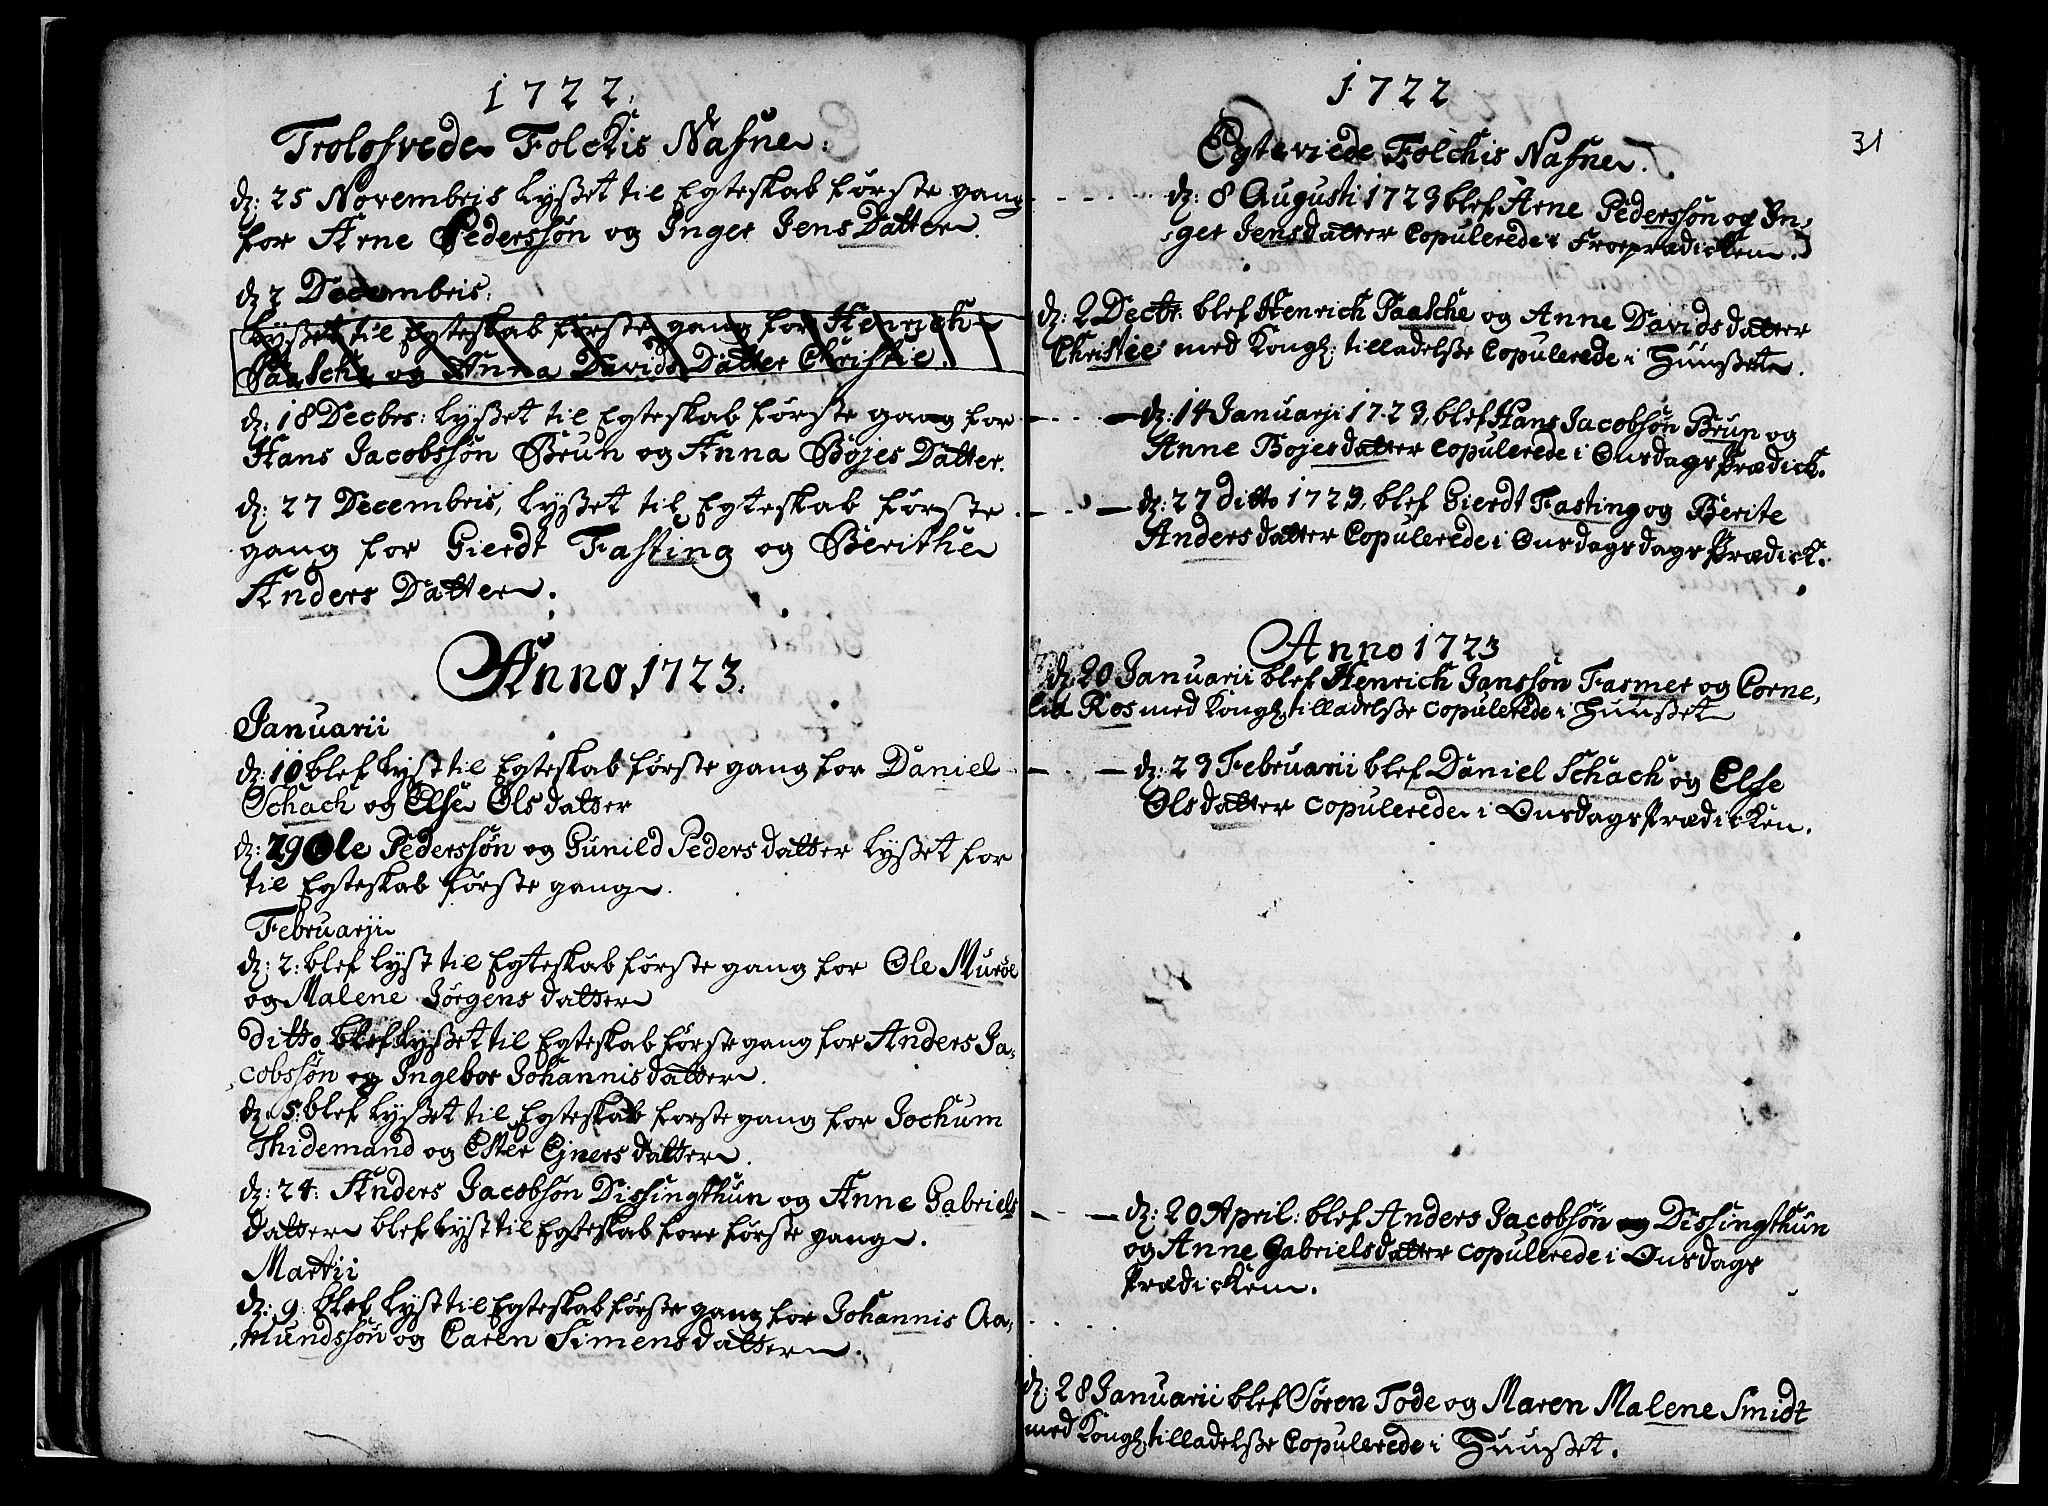 1722.
Trolofvede Folckis Nafne.
dz: 25 Novembris lysset til Egteskab første gang
for Arne Pederssøn og Inger Jens Datter.
dz 2 Decembris:
lysset til Egteskab første gang for Henrich
Paasche og Anna Davids Datter Christie.
dz: 18 Decbes: lysset til Egteskab første gang for
Hans Jacobssøn Brun og Anna Bøjes Datter.
dz: 27 Decembris, lysset til Egteskab første
gang for Gierdt Fasting og Berithe
Anders Datter.
Anno 1723.
Januarii
dz: 10 blef lyst til Egteskab første gang for Daniel
Schach og Else Olsdatter
dz: 29 Ole Pederssøn og Gunild Pedersdatter lysset for
til Egteskab første gang.
Februarji
dz: 2: blef lyst til Egteskab første gang for Ole Murøe
og Malene Jørgensdatter
Ditto blef lysset til Egteskab første gang for Anders Ja-
cobssøn og Ingebor Johannisdatter.
dz. 5: blef lysset til Egteskab første gang for Jochum
Thidemand og Ester Ejnersdatter.
dz: 24: Anders Jacobsøn Dissingthun og Anne Gabriels
Datter blef lyst til Egteskab fore første gang.
Martii
dz: 9: blef lyst til Egteskab første gang for Johannis Aa-
mundssøn og Caren Simensdatter.
1722
31
Egteviede Folchis Nafne.
dz: 8 Augusti 1723 blef Arne Pederssøn og In-
ger Jensdatter Copulerede i Froeprædicken.
dz: 2 Decbr: blef Henrich Paasche og Anne Davidsdatter
Christie med Kongl: tilladelsse Copulerede i Huusset.
dz: 14 Januarji 1723, blef Hans Jacobsøn Brun og
Anne Bojesdatter Copulerede i Onsdags Prædick.
dz: 27 ditto 1723, blef Gierdt Fasting og Berite
Andersdatter Copulerede i Onsdagsdags Prædick.
Anno 1723
dz. 20 Januarii blef Henrich Janssøn Fasmer og Corne,
lia Ros med Kongl, tilladelsse copulerede i Huusset
dz: 23 Februarii blef Daniel Schach og Else
Olsdatter copulerede i Onsdags Prædicken.
dz: 20 April: blef Anders Jacobsøn og Dissingthun
og Anne Gabrielsdatter copulerede i Onsdags
Prædicken.
dz: 28 Januarii blef Søren Tode og Maren Malene Smidt
med Kongl, tilladelsse Copulerede i Huusset.